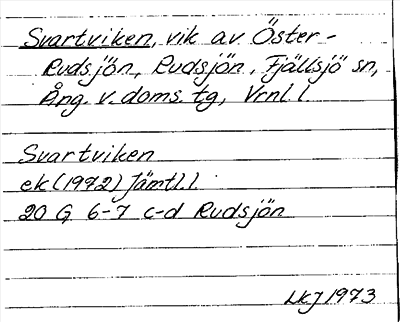 Svartviken, vik av Öster-
Rudsjön, Rudsjön, Fjällsjö sn,
Ång. v. doms. tg, Vrnl. l.
Svartviken
ek (1972) Jämtl. l.
20 G 6-7 c-d Rudsjön
LKJ 1973